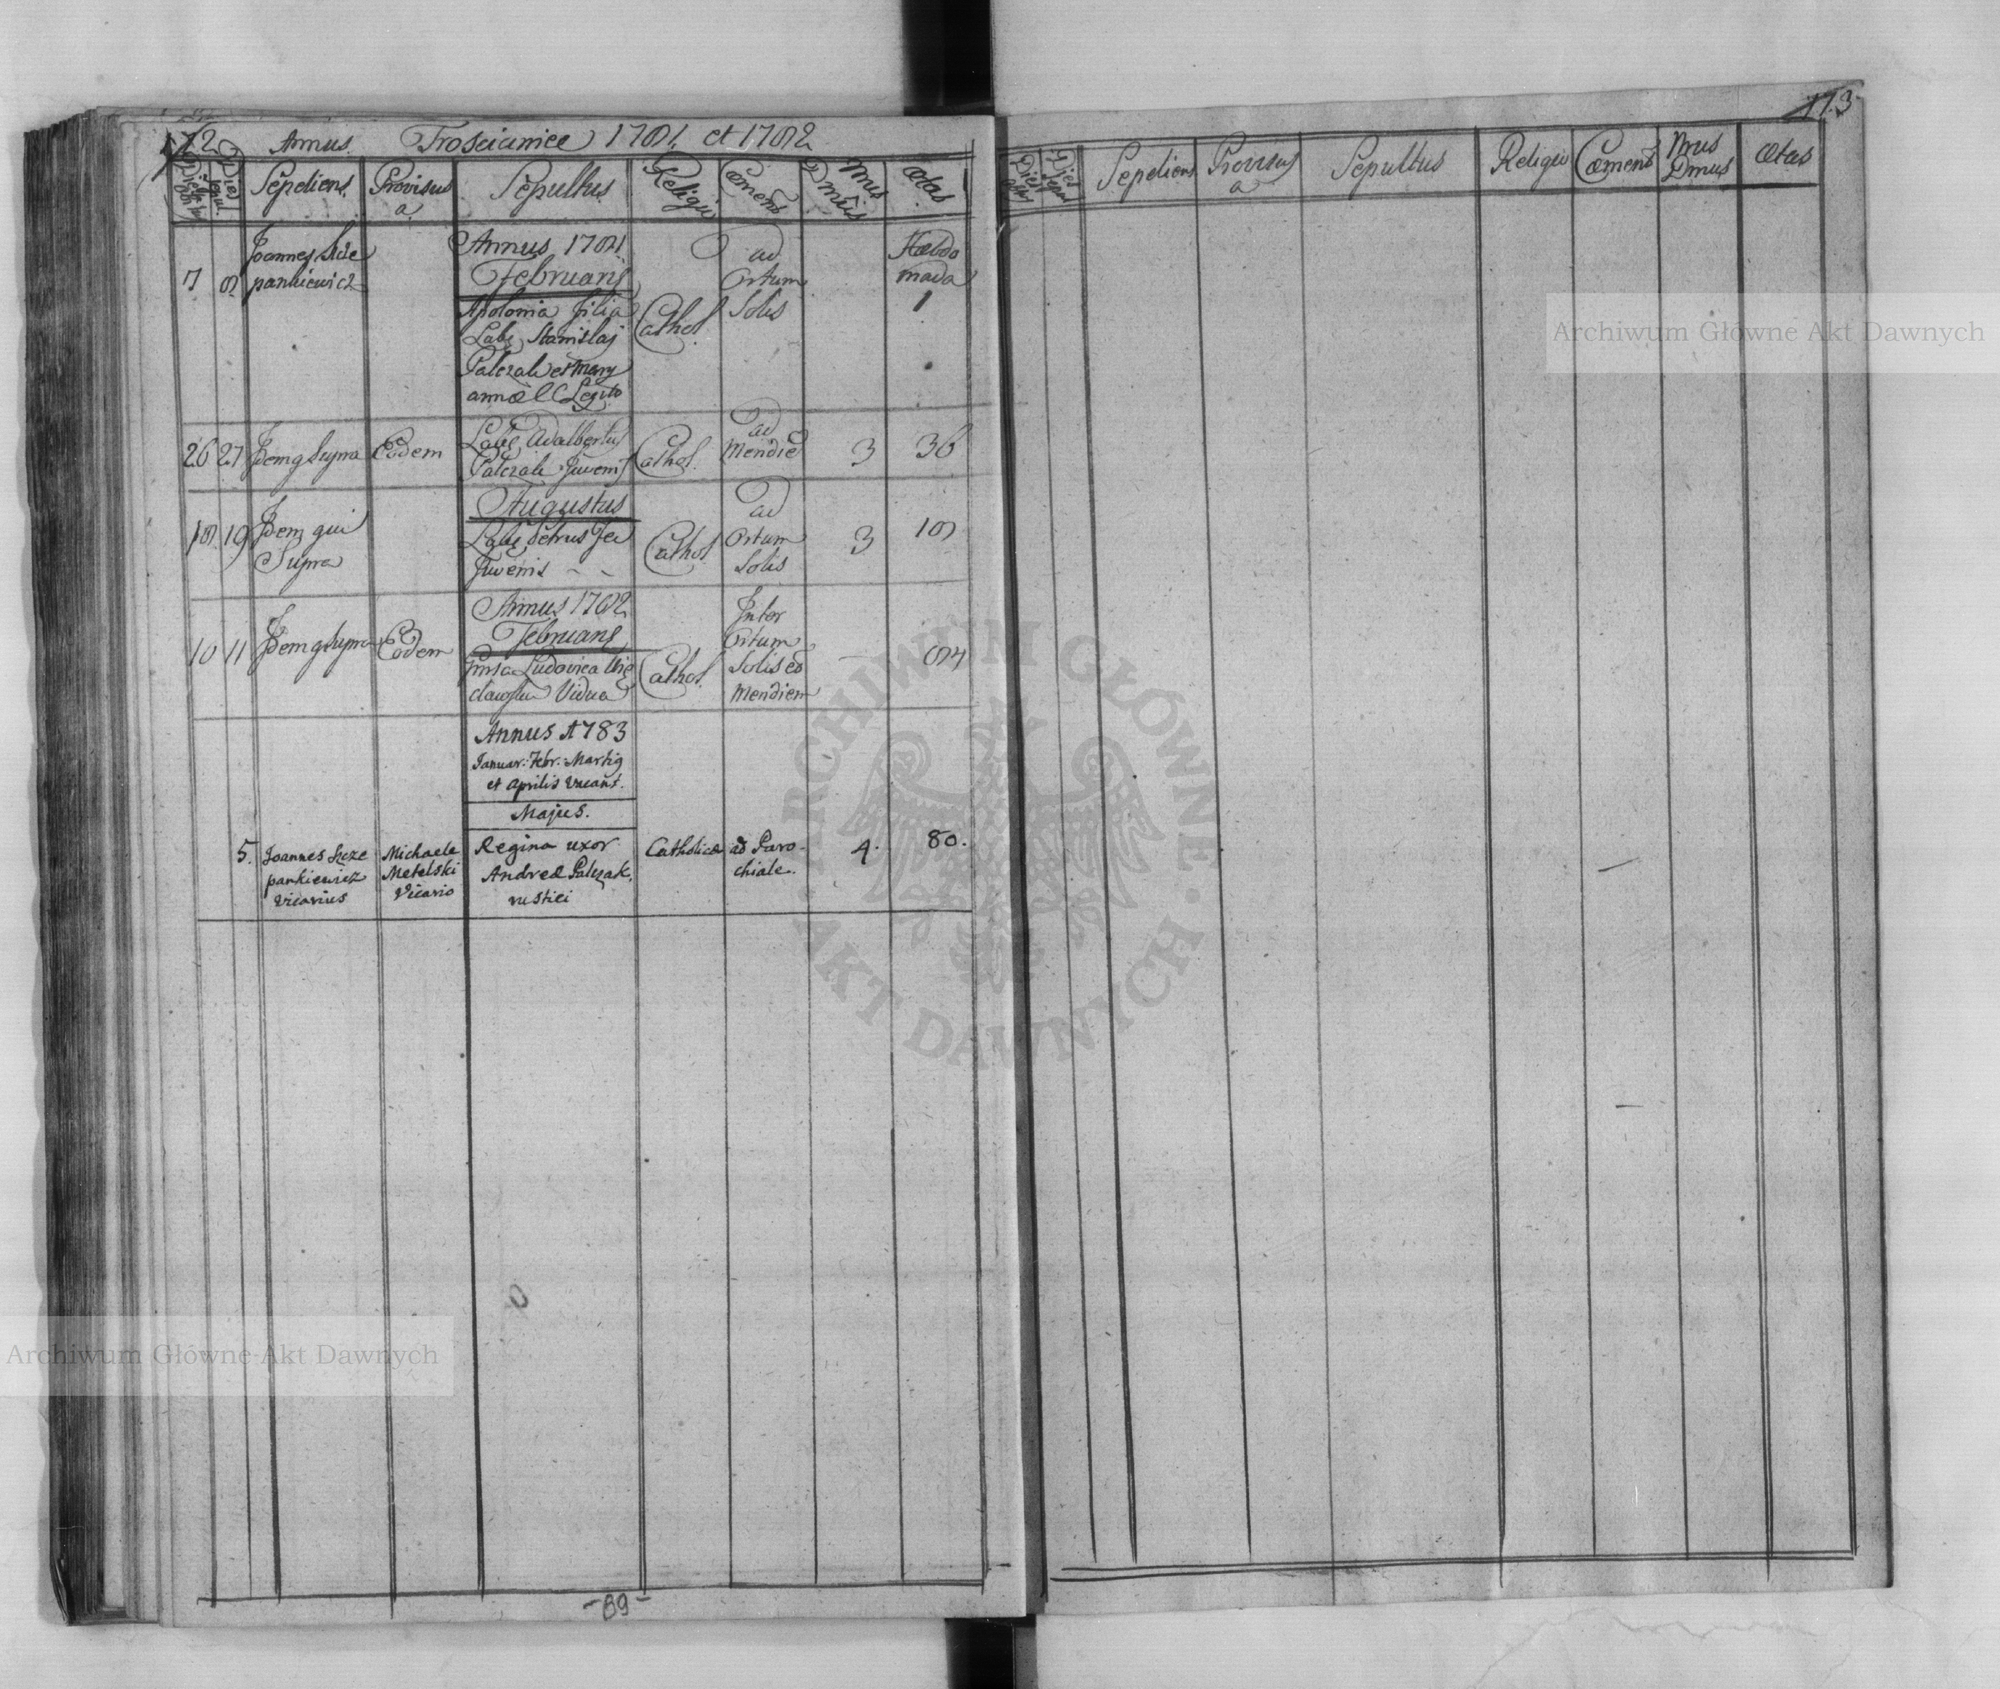 172
Annus Trościaniec 1781 et 1782
Dies
Dies Sepul.
Sepeliens
Provisus a
Sepultus
Religio
Cœment
Mus Dmus
Ætas
7 8 Joannes Szcze
pankiewicz
Annus 1781
Februarij
Apolonia filia
Lab: Stanislaj
Palczak et Mary
annæ C Legito
Cathol.
ad
Ortum
Solis
Hæbdo
mada
1
26 27 Idem q Supra
Eodem
Lab: Adalbertus
Palczak Juvenis
Cathol.
ad
Meridiē
3
36
Augustus
18 19 Idem qui
Supra
Lab: Petrus
Juvenis
Cathol
ad
Ortum
Solis
3
18
Annus 1782
Februarij
10 11 Idem q Supra
Eodem
Ludovica
Vidua
Cathol.
Inter
Ortum
Solis et
Meridiem
84
Annus 1783
Januar: Febr: Martig
et Aprilis Vacant.
Majus.
5. Joannes Szcze
pankiewicz
Vicarius
Michaele
Metelski
Vicario
Regina uxor
Andreæ Palczak,
rustici
Catholicæ
ad Paro-
chiale.
4.
80.
-89-
173
Dies
Dies
Sepeliens
Provisus
a
Sepultus
Religio
Cœment
Mus
Dmus
Ætas
Archiwum Główne Akt Dawnych
Archiwum Główne Akt Dawnych
ARCHIWUM GŁÓWNE
AKT DAWNYCH